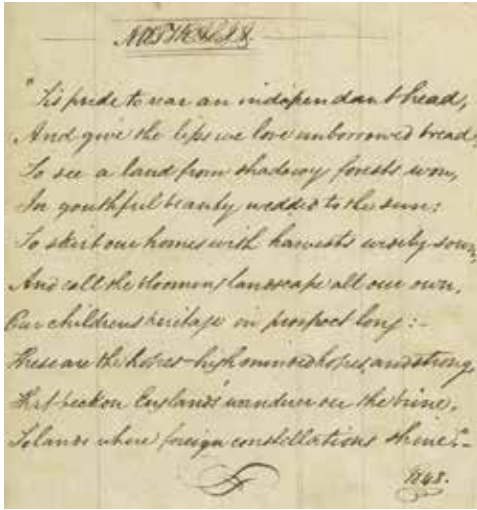 "Tis pride to rear an independant head,
And give the lips we love unborrowed bread;
To see a land from shadowy forests won,
In youthful beauty wedded to the sun;
To skirt our homes with harvests widely sown,
And call the blooming landscape all our own,
Our childrens heritage in prospect long:-
These are the hopes-high minded hopes, and strong,
That beckon Englands' wandrer oer the brine,
To lands where foreign constellations shine."-
1848.